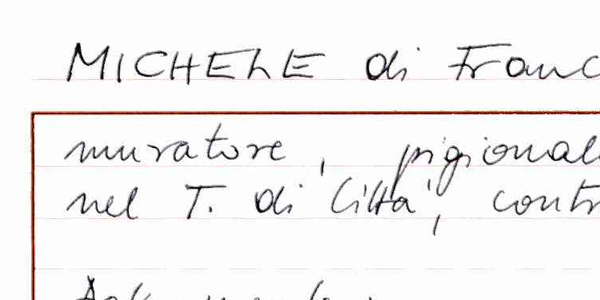 MICHELE di Franc
muratore, pigional
nel T. di Città, contr